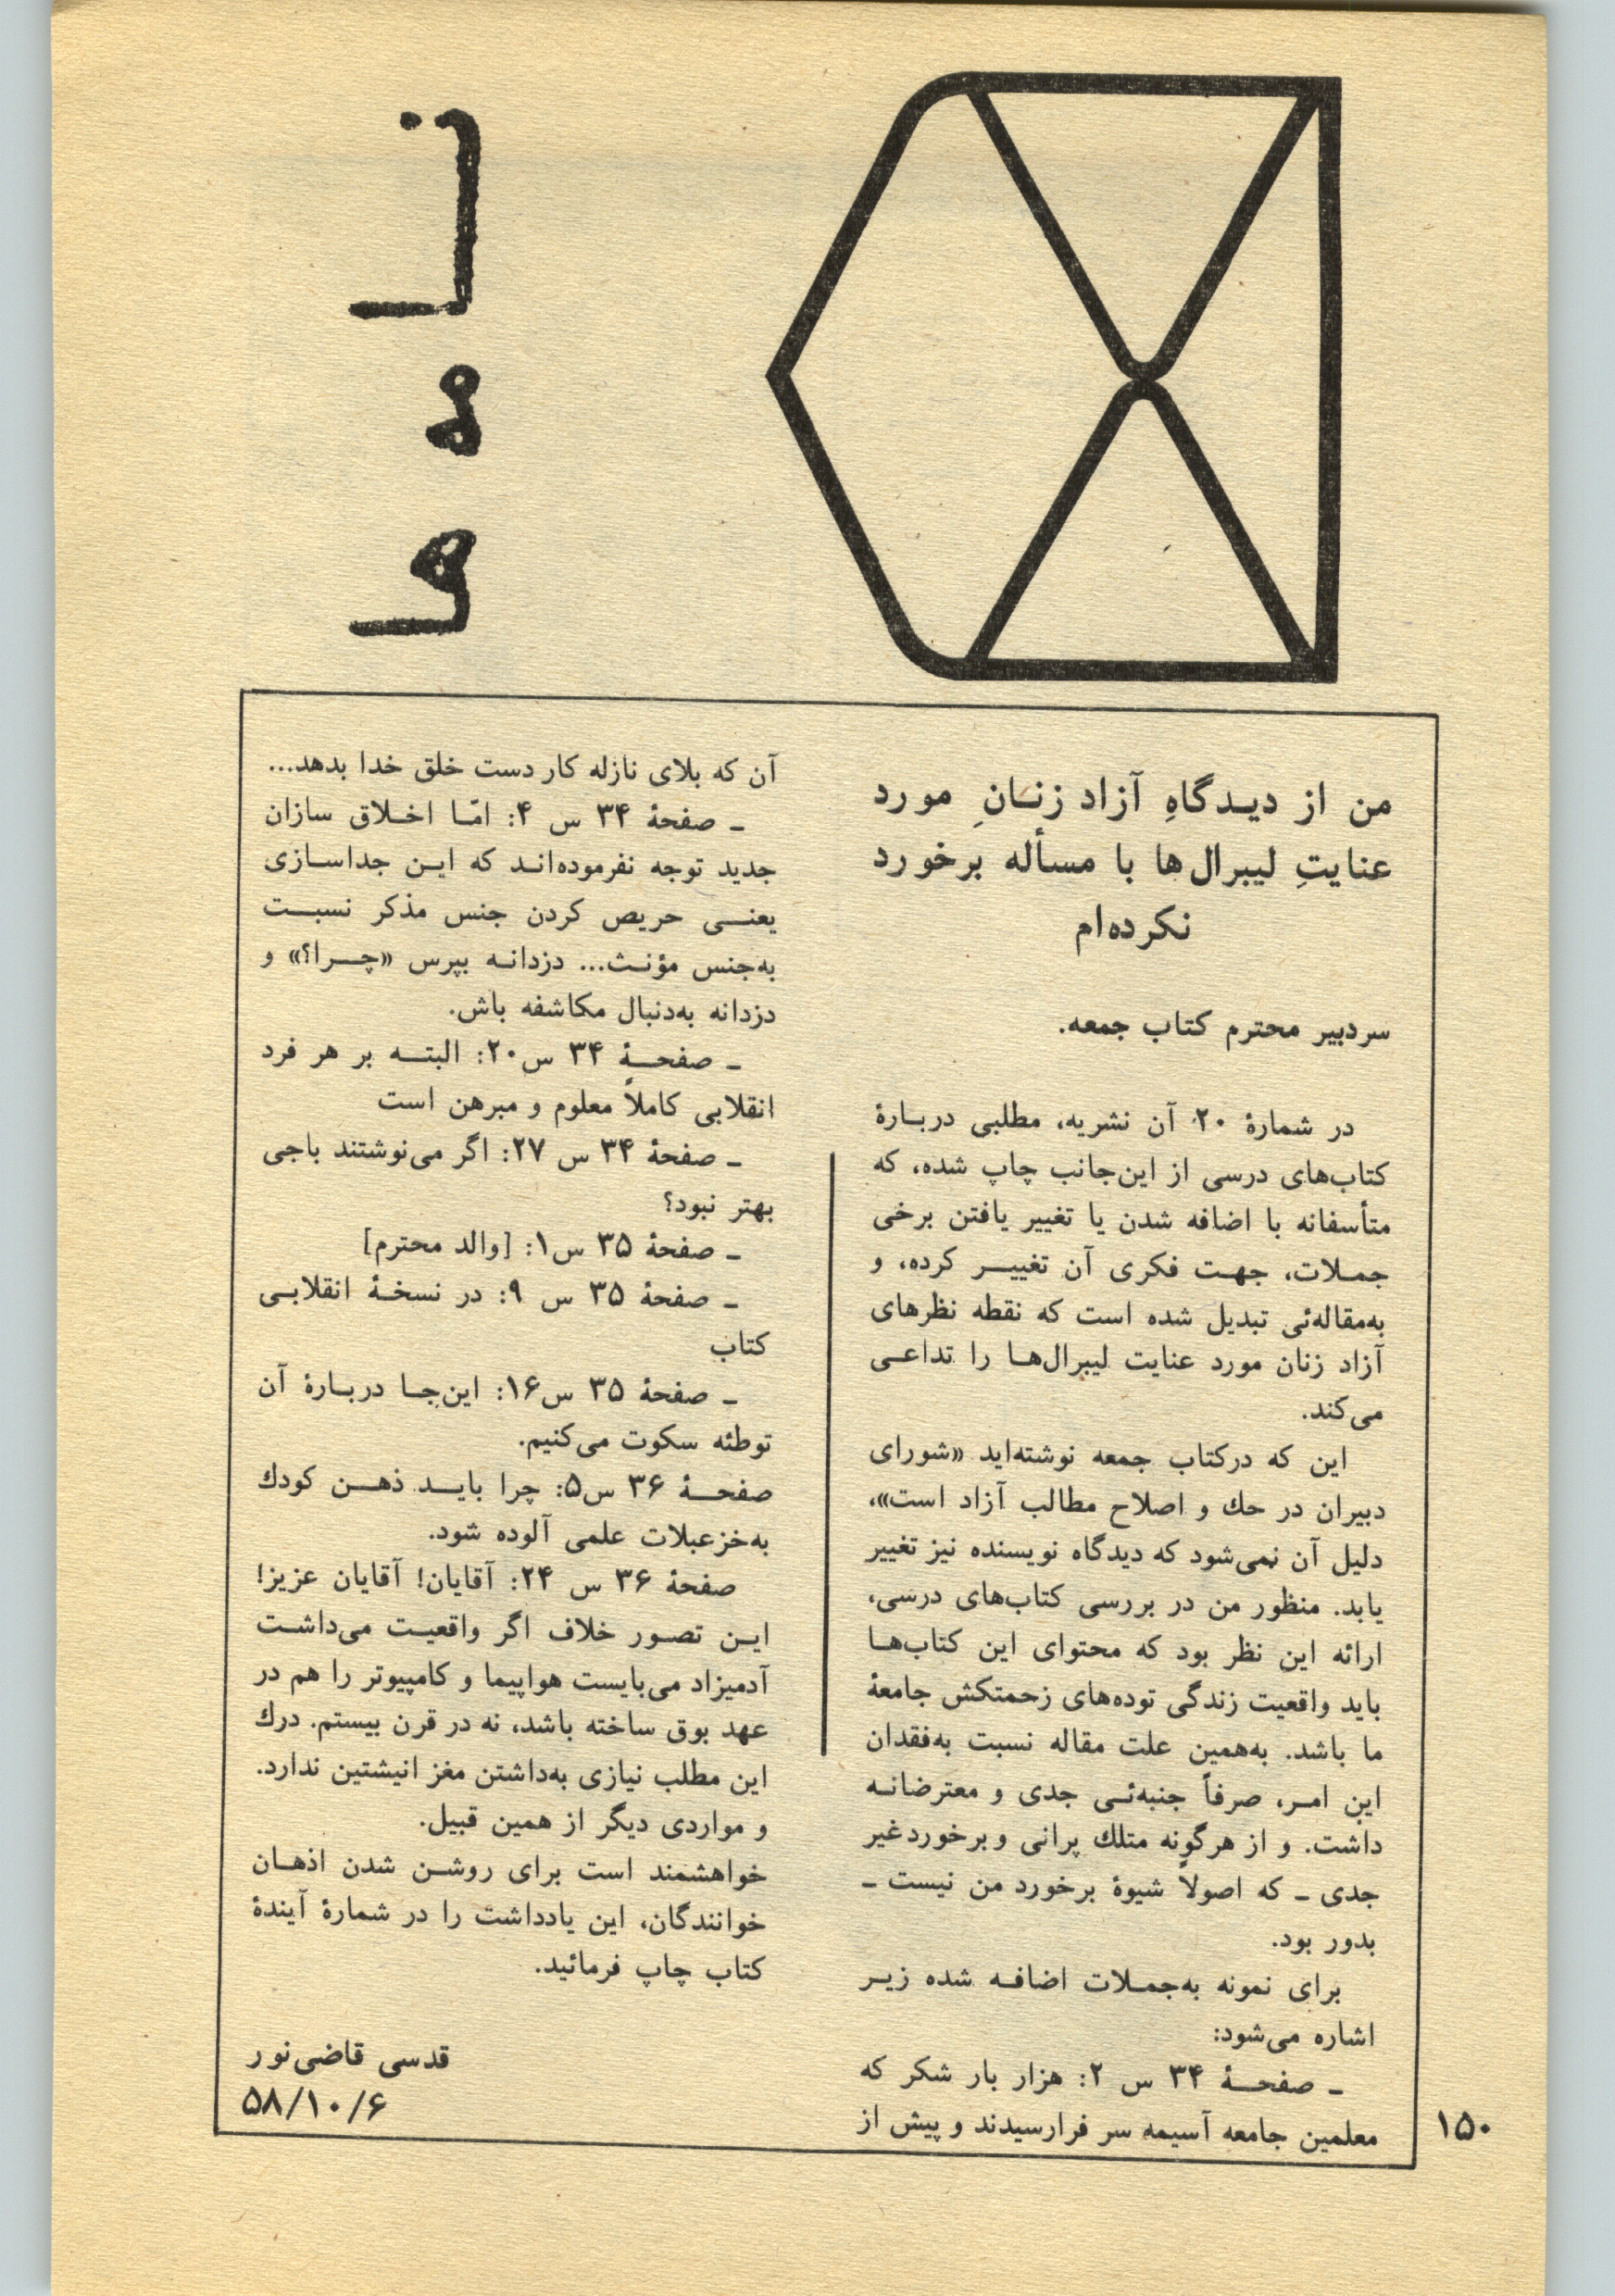 نامه ها
من از دیـدگاهِ آزاد زنـانِ مورد
عنایتِ لیبرال‌ها با مسأله برخورد
نکرده‌ام
سردبیر محترم کتاب جمعه.
در شمارهٔ ۲۰ آن نشریه، مطلبی دربـارهٔ
کتاب‌های درسی از این‌جانب چاپ شده، که
متأسفانه با اضافه شدن یا تغییر یافتن برخی
جمـلات، جهـت فکری آن تغییـر کرده، و
به‌مقاله‌ئی تبدیل شده است که نقطه نظرهای
آزاد زنان مورد عنایت لیبرال‌هـا را تداعـی
می‌کند.
این که درکتاب جمعه نوشته‌اید «شورای
دبیران در حك و اصلاح مطالب آزاد است»،
دلیل آن نمی‌شود که دیدگاه نویسنده نیز تغییر
یابد. منظور من در بررسی کتاب‌های درسی،
ارائه این نظر بود که محتوای این کتاب‌هـا
باید واقعیت زندگی توده‌های زحمتکش جامعهٔ
ما باشد. به‌همین علت مقاله نسبت به‌فقدان
این امـر، صرفاً جنبه‌ئـی جدی و معترضانـه
داشت. و از هرگونه متلك پرانی و برخورد غیر
جدی ـ که اصولاً شیوهٔ برخورد من نیست ـ
بدور بود.
برای نمونه به‌جمـلات اضافـه شده زیـر
اشاره می‌شود:
ـ صفحـهٔ ۳۴ س ۲: هزار بار شکر که
معلمین جامعه آسیمه سر فرارسیدند و پیش از
آن که بلای نازله کار دست خلق خدا بدهد...
ـ صفحهٔ ۳۴ س ۴: امّـا اخـلاق سازان
جدید توجه نفرموده‌انـد که ایـن جداسـازی
یعنـی حریص کردن جنس مذکر نسبـت
به‌جنس مؤنـث... دزدانـه بپرس «چـرا؟» و
دزدانه به‌دنبال مکاشفه باش.
ـ صفحـهٔ ۳۴ س۲۰: البتـه بر هر فرد
انقلابی کاملاً معلوم و مبرهن است
ـ صفحهٔ ۳۴ س ۲۷: اگر می‌نوشتند باجی
بهتر نبود؟
ـ صفحهٔ ۳۵ س۱: [والد محترم]
ـ صفحهٔ ۳۵ س ۹: در نسخـهٔ انقلابـی
کتاب
ـ صفحهٔ ۳۵ س۱۶: این‌جـا دربـارهٔ آن
توطئه سکوت می‌کنیم.
صفحـهٔ ۳۶ س۵: چرا بایـد ذهـن کودك
به‌خزعبلات علمی آلوده شود.
صفحهٔ ۳۶ س ۲۴: آقایان! آقایان عزیز!
ایـن تصـور خلاف اگر واقعیـت می‌داشـت
آدمیزاد می‌بایست هواپیما و کامپیوتر را هم در
عهد بوق ساخته باشد، نه در قرن بیستم. درك
این مطلب نیازی به‌داشتن مغز انیشتین ندارد.
و مواردی دیگر از همین قبیل.
خواهشمند است برای روشـن شدن اذهـان
خوانندگان، این یادداشت را در شمارهٔ آیندهٔ
کتاب چاپ فرمائید.
قدسی قاضی‌نور
۵۸/۱۰/۶
۱۵۰